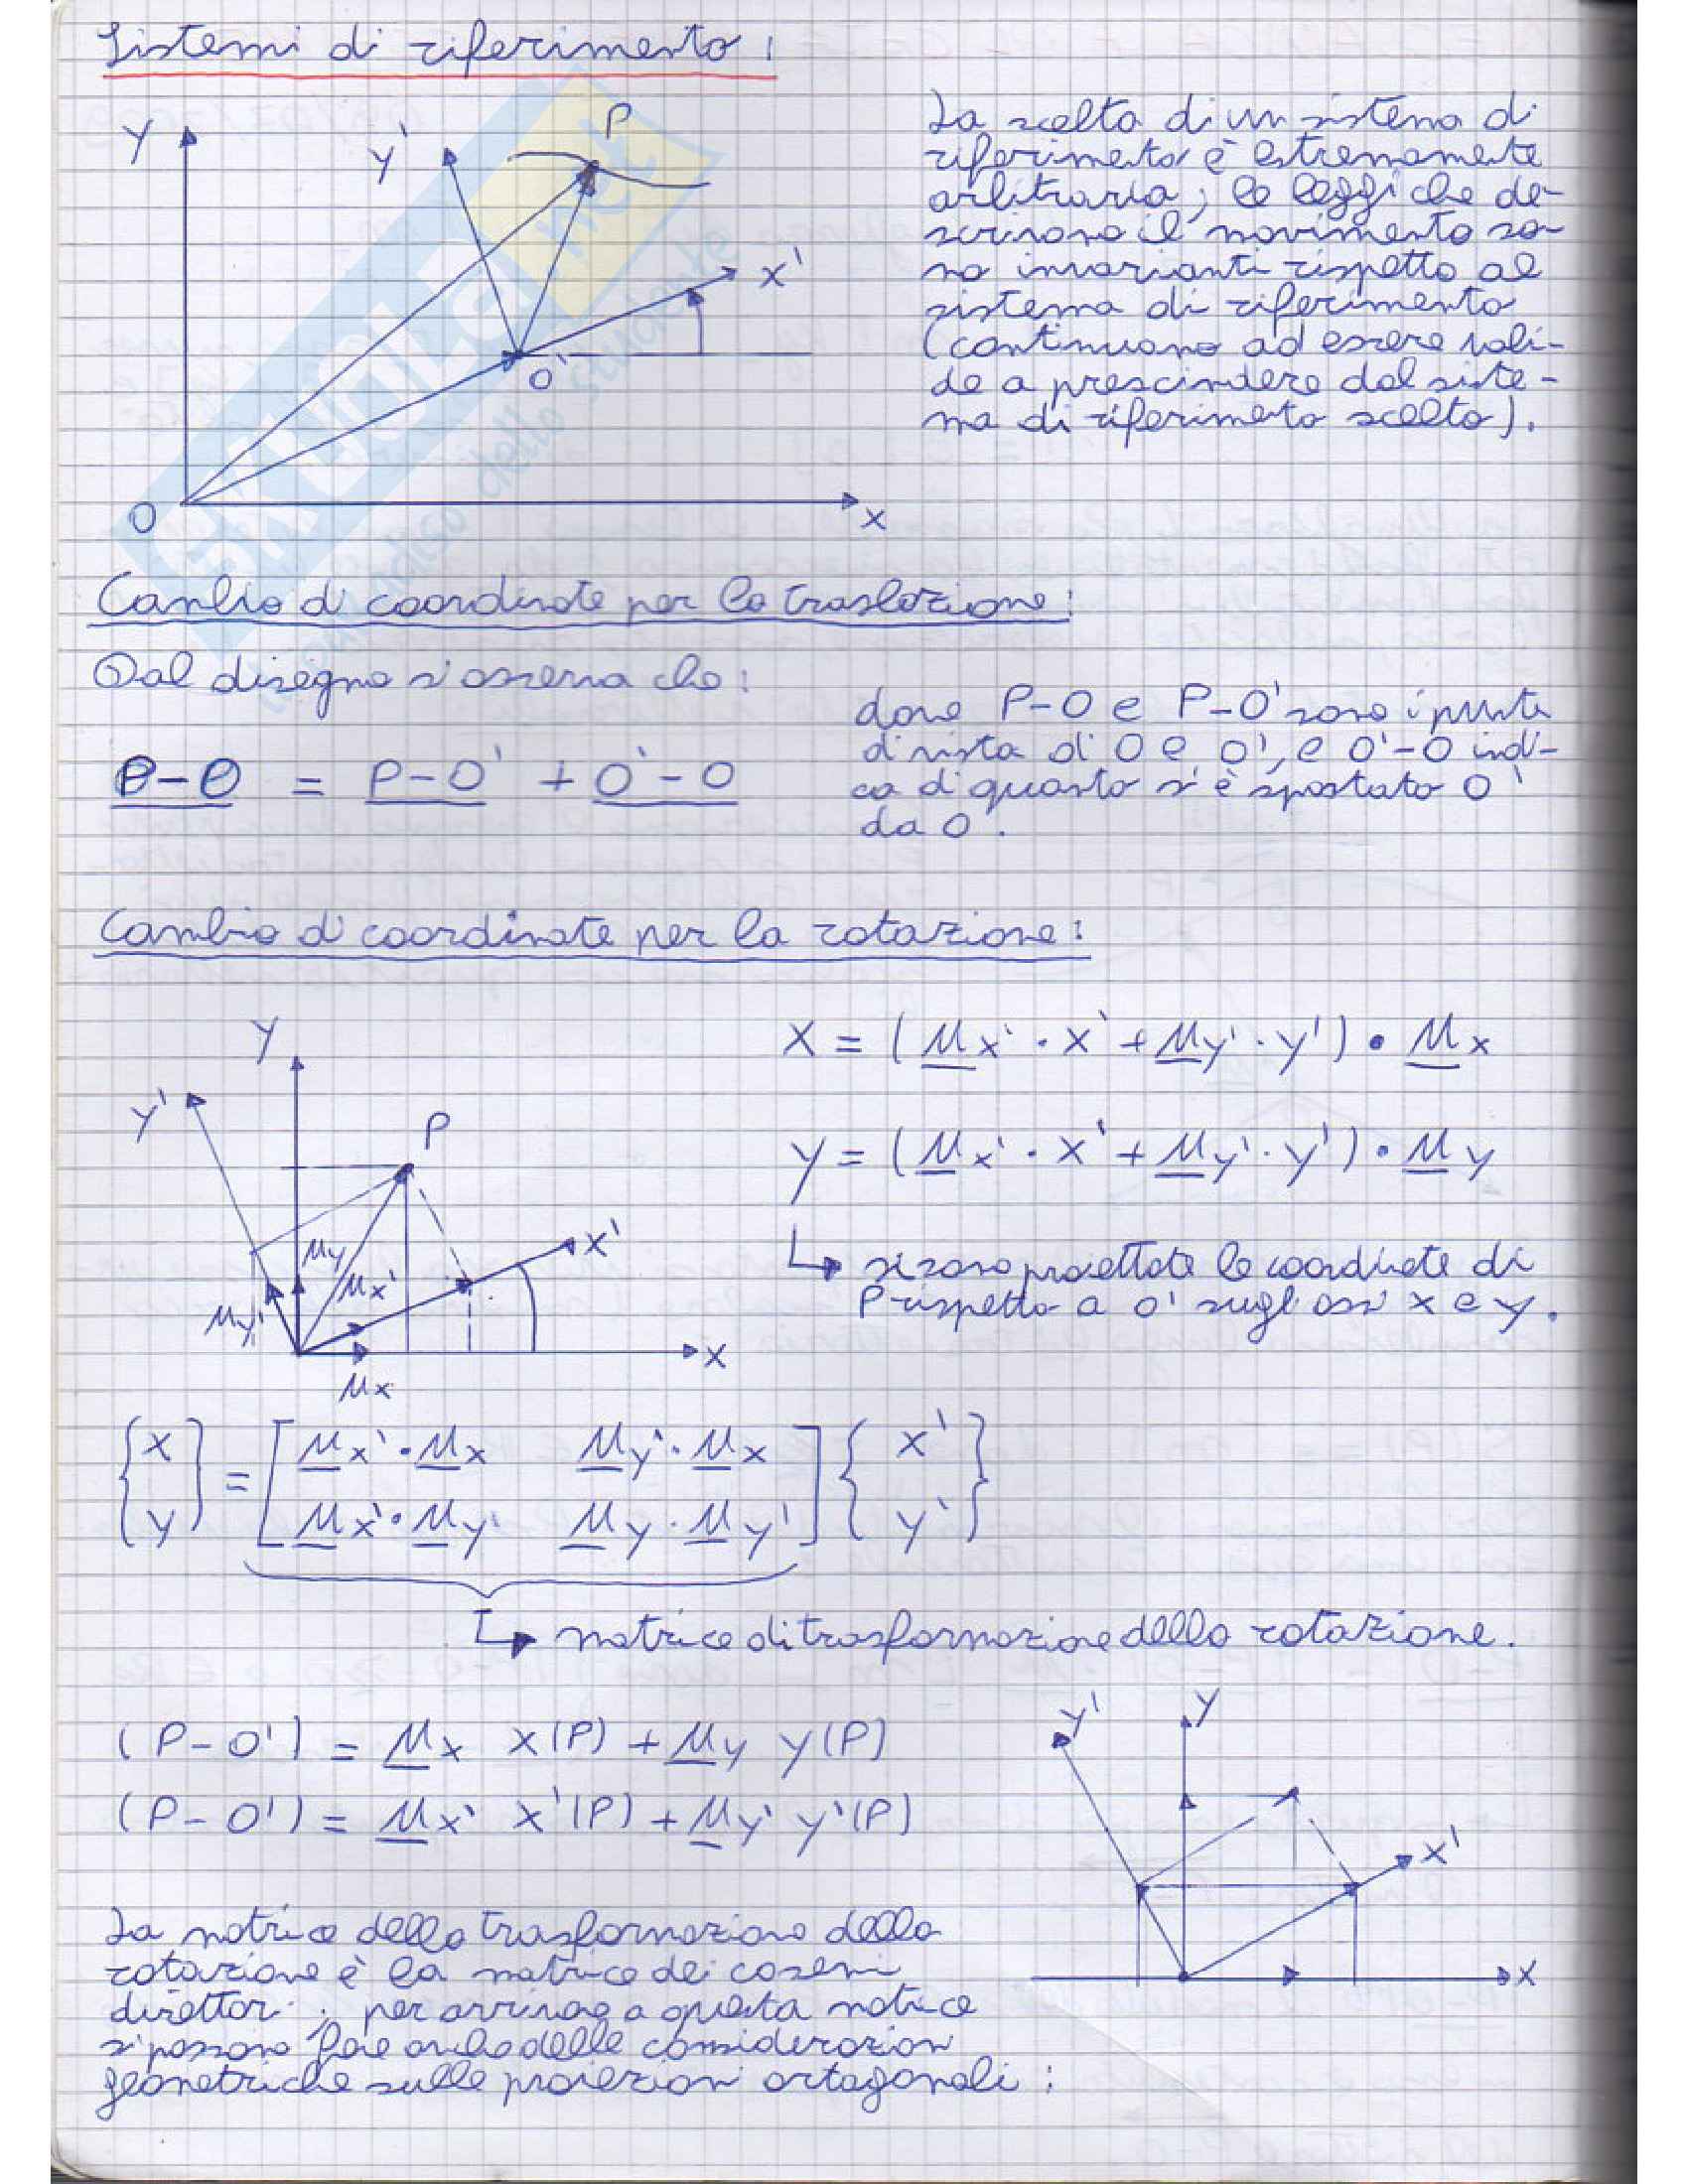 Sistemi di riferimento:
Y
Y'
P
X'
O'
O
X
La scelta di un sistema di
riferimento è estremamente
arbitraria; le leggi che de-
scrivono il movimento so-
no invarianti rispetto al
sistema di riferimento
(continuano ad essere vali-
de a prescindere dal siste-
ma di riferimento scelto).
SKUOLA.net
il paradiso dello studente
Cambio di coordinate per la traslazione:
Dal disegno si osserva che:
P-O = P-O' + O'-O
dove P-O e P-O' sono i punti
di vista di O e O', e O'-O indi-
ca di quanto si è spostato O'
da O.
Cambio di coordinate per la rotazione:
Y
Y'
P
X'
μy
μx'
μy'
X
μx
X = (μx' · x' + μy' · y') · μx
Y = (μx' · x' + μy' · y') · μy
↳ si sono proiettate le coordinate di
P rispetto a O' sugli assi x e y.
{x y} = [μx'·μx μy'·μx
μx'·μy' μy·μy'] {x' y'}
↳ matrice di trasformazione della rotazione.
(P-O') = μx x(P) + μy y(P)
(P-O') = μx' x'(P) + μy' y'(P)
Y'
Y
X'
X
La matrice della trasformazione della
rotazione è la matrice dei coseni
direttori; per arrivare a questa matrice
si possono fare anche delle considerazioni
geometriche sulle proiezioni ortogonali: